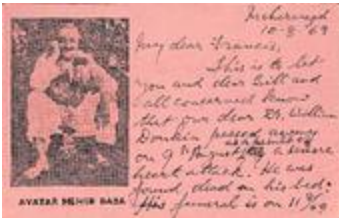 Meherazad
10-8-69
My dear Francis,
This is to let
you and dear Bill and
all concerned know
that our dear Dr. William
Donkin passed away
on 9th August as a result of a severe
heart attack. He was
found dead on his bed.
His funeral is on 11/8/69
AVATAR MEHER BABA